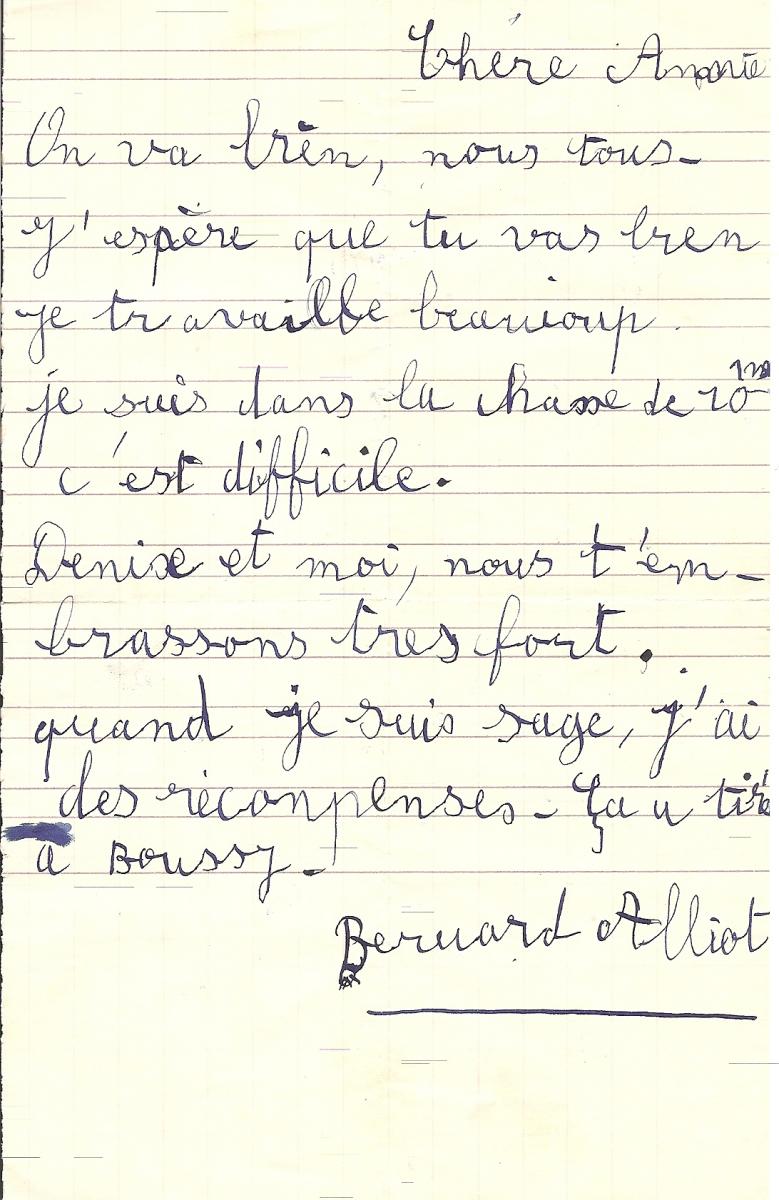 Chére Annie
On va bien, nous tous-
J'espère que tu vas bien
je travaille beaucoup.
je suis dans la chasse de 10m
c'est difficile.
Denise et moi, nous t'em-
brassons tres fort.
quand je suis sage, j'ai
des réconpenses- Ça a tiré
a Boussy-
Bernard Alliot